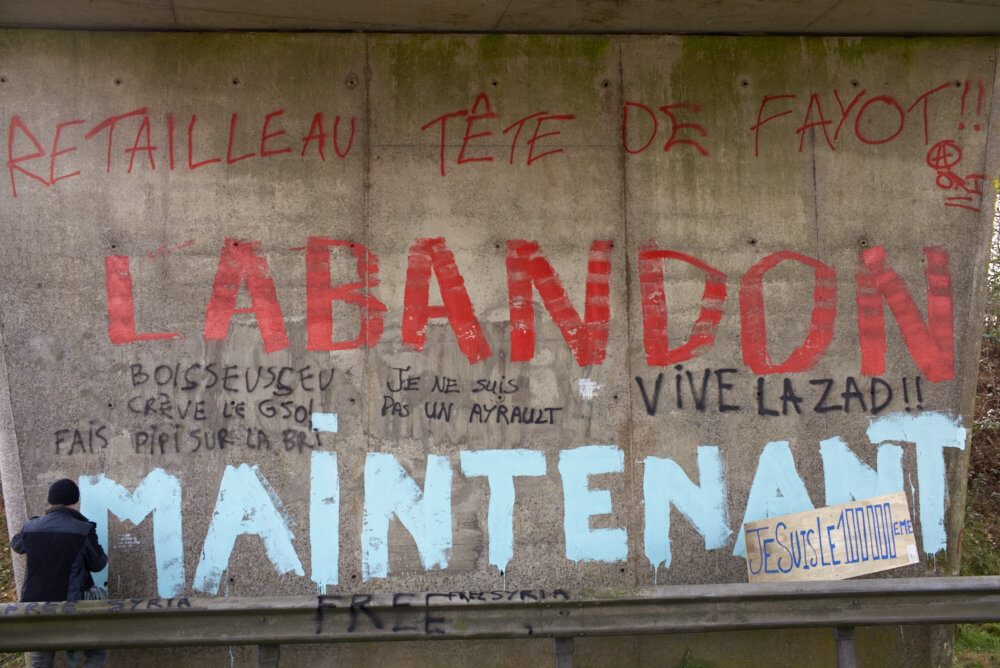 RETAILLEAU TÊTE DE FAYOT !!
LABANDON
BOISSEUSSEU
CRÈVE LE GSOI
FAIS PIPI SUR LA BRI
JE NE SUIS
PAS UN AYRAULT
VIVE LA ZAD !!
MAINTENANT
JE SUIS LE 1000000EME
FREE SYRIA
FREE
FREE SYRIA